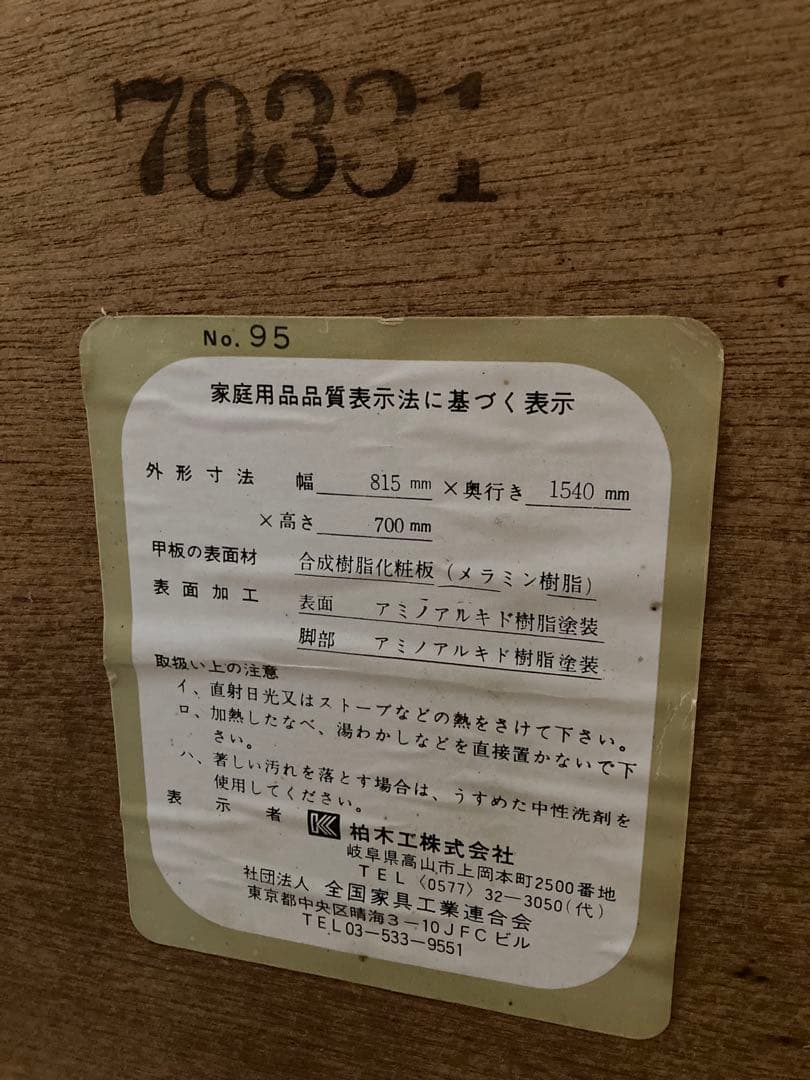 70331
No. 95
家庭用品品質表示法に基づく表示
外形寸法 幅 815 mm ×奥行き 1540 mm
×高さ 700 mm
甲板の表面材 合成樹脂化粧板(メラミン樹脂)
表面加工 表面 アミノアルキド樹脂塗装
脚部 アミノアルキド樹脂塗装
取扱い上の注意
イ、直射日光又はストーブなどの熱をさけて下さい。
ロ、加熱したなべ、湯わかしなどを直接置かないで下
さい。
ハ、著しい汚れを落とす場合は、うすめた中性洗剤を
使用してください。
表示者 柏木工株式会社
岐阜県高山市上岡本町2500番地
TEL〈0577〉32-3050(代)
社団法人 全国家具工業連合会
東京都中央区晴海3-10JFCビル
TEL03-533-9551